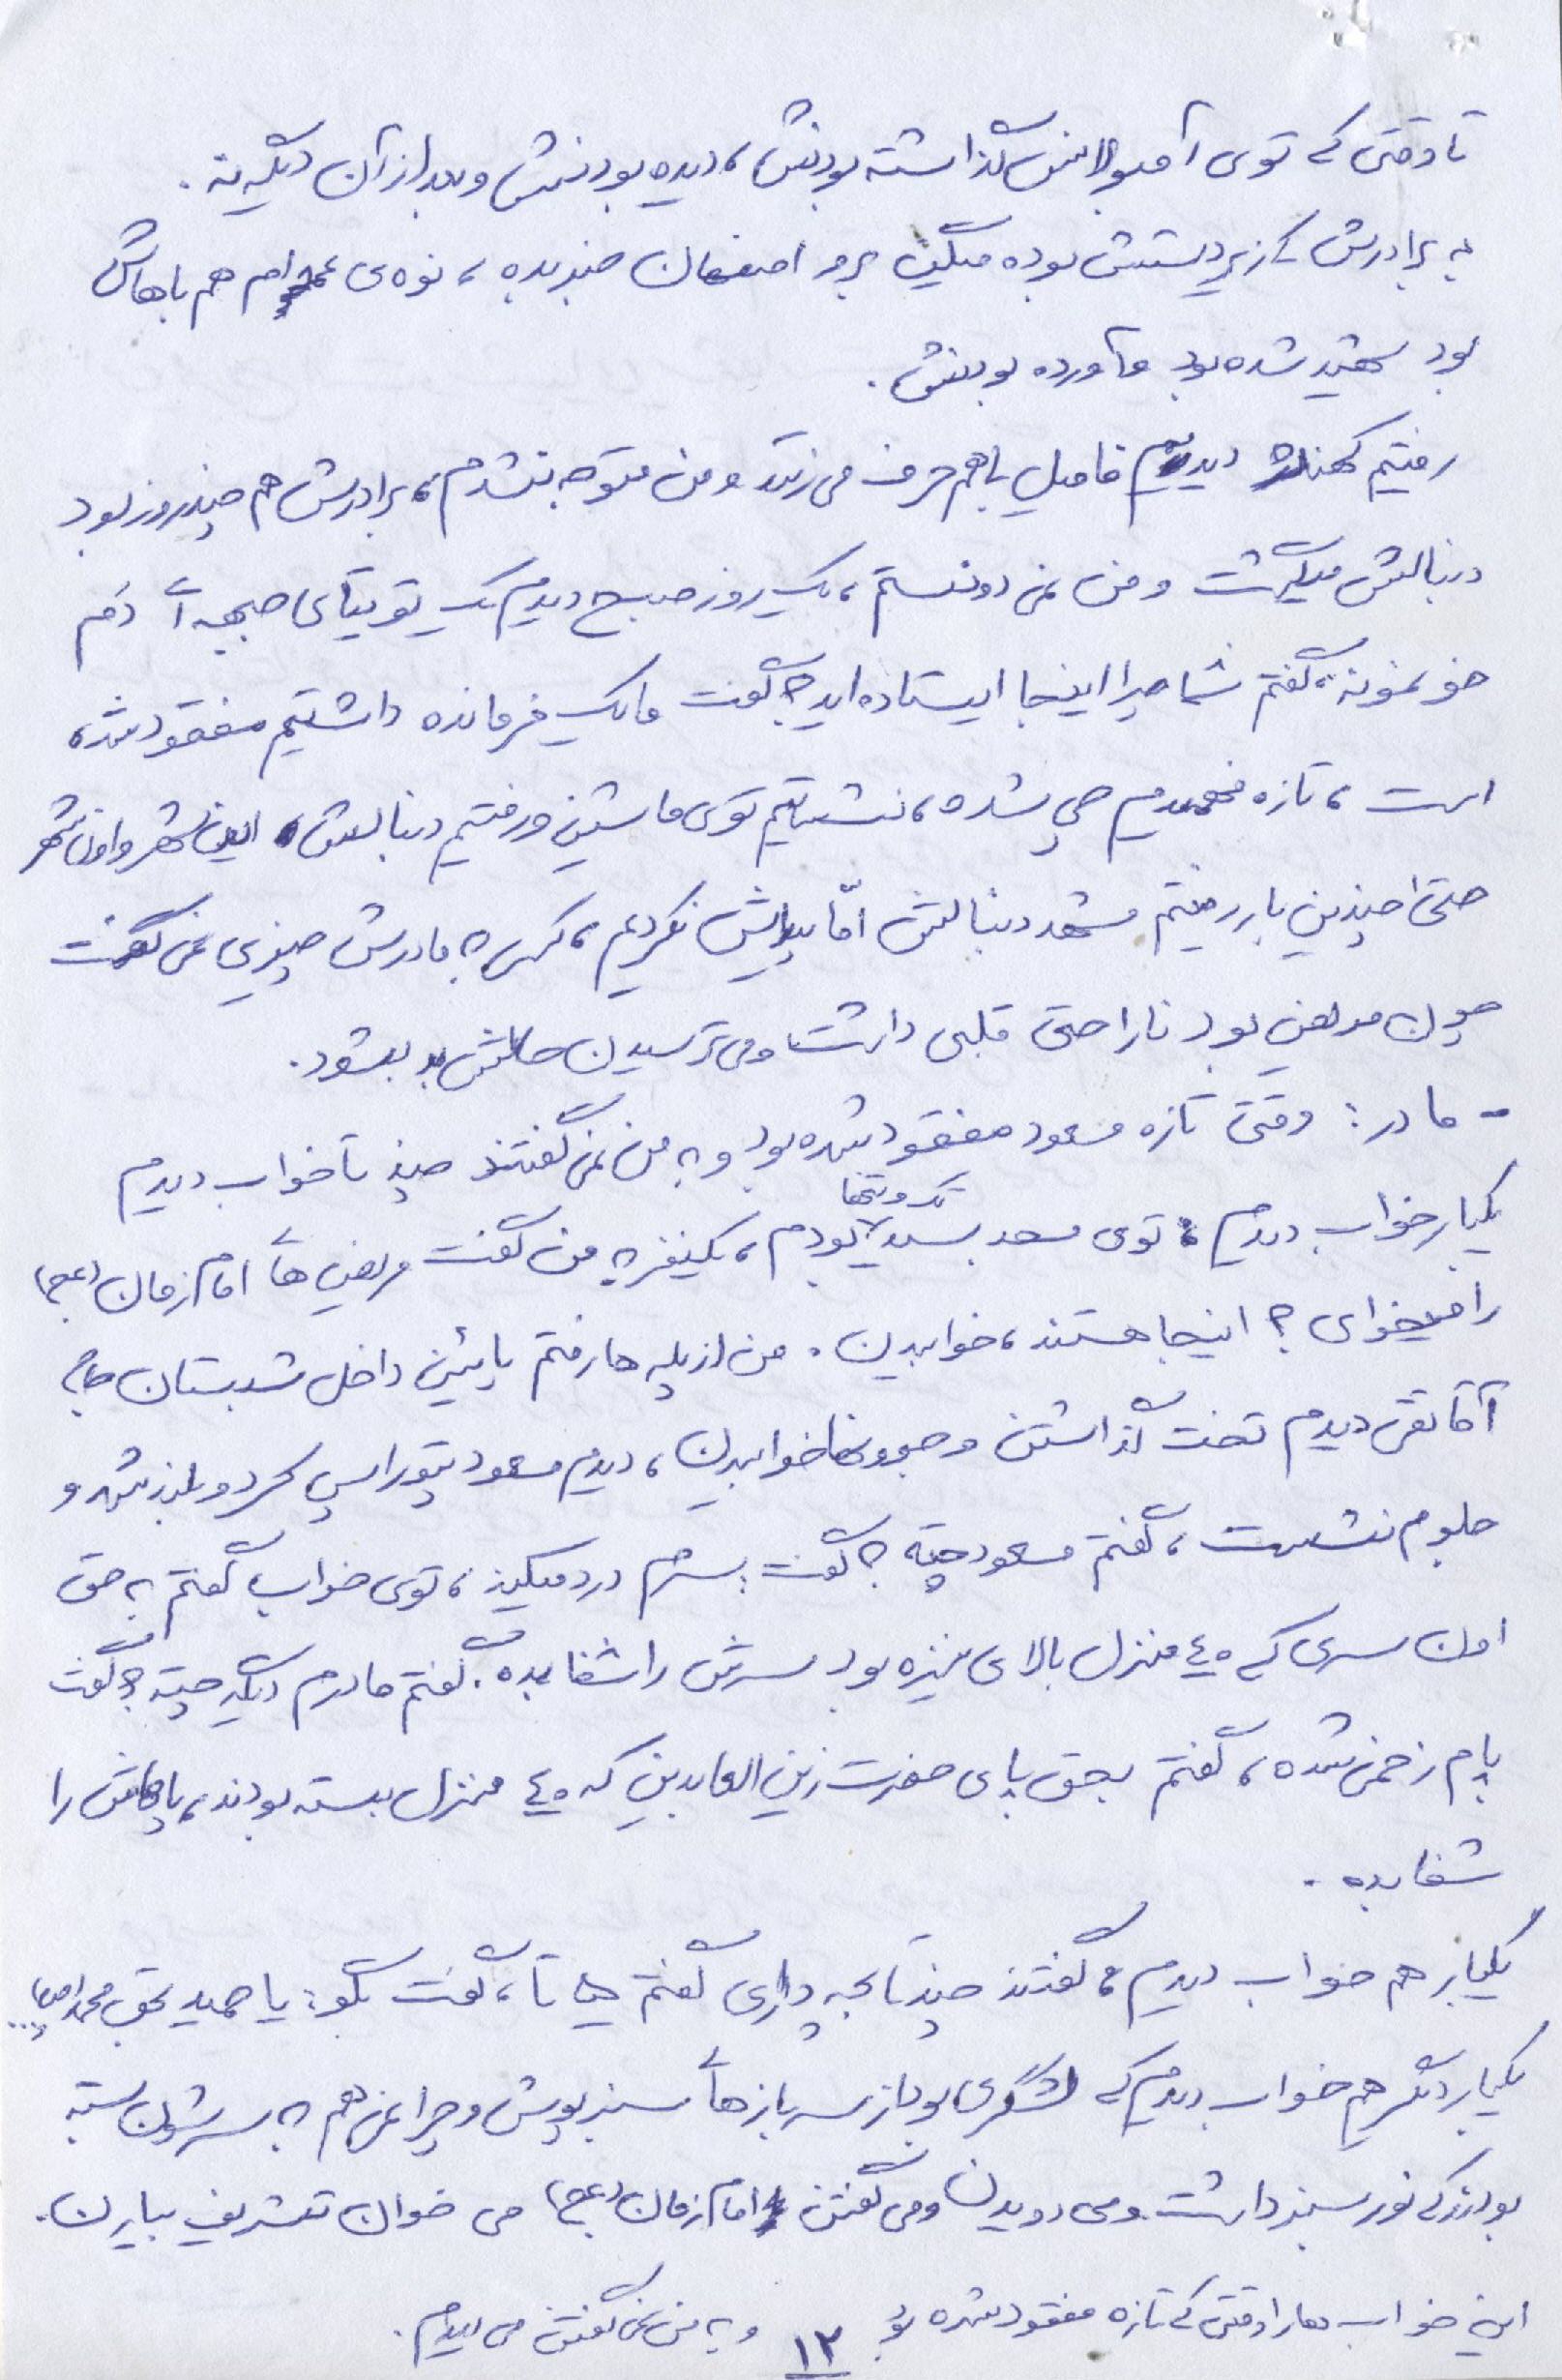 تا وقتی که توی آمبولانس گذاشته بودنش، دیده بودنش و بعد از آن دیگه نه.
به برادرش که زیر دستش بوده میگن برو اصفهان خبر بده، نوه‌ی عمه‌ام هم باهاش
بود شهید شده بود و آورده بودنش.
رفتیم دیدیم فامیل با هم حرف می زنند و من متوجه نشدم، برادرش هم چند روز بود
دنبالش میگشت و من نمی دونستم، یک روز صبح دیدم یک تویتای جبهه آ دَم
خونمونه، گفتم شما چرا اینجا ایستاده اید؟ گفت ما یک فرمانده داشتیم مفقود شده
است، تازه فهمیدم چی شده، نشستیم توی ماشین و رفتیم دنبالش، این شهر و اون شهر
حتی چندین بار رفتیم مشهد دنبالش امّا پیدایش نکردیم، کسی به مادرش چیزی نمی گفت
چون مریض بود ناراحتی قلبی داشت و می ترسیدن حالش بد بشود.
- مادر: وقتی تازه مسعود مفقود شده بود و به من نمی گفتند چند تا خواب دیدم
یکبار خواب دیدم توی مسجد سید تک و تنها بودم، یکنفر به من گفت مریض های امام زمان (عج)
را میخوای؟ اینجا هستند، خوابیدن. من از پله ها رفتم پائین داخل شبستان حاج
آقا تقی دیدم تخت گذاشتن و جوونها خوابیدن، دیدم مسعود پتو را پس کرد و بلند شد و
جلوم نشست، گفتم مسعود چیته؟ گفت: سرم درد میکند، توی خواب گفتم به حق
اون سری که ۴۰ منزل بالای نیزه بود سرش را شفا بده. گفتم مادرم دیگه چیته؟ گفت
پام زخمی شده، گفتم بحق پای حضرت زین العابدین که ۴۰ منزل بسته بودند، پاهاش را
شفا بده.
یکبار هم خواب دیدم، گفتند چند تا بچه داری گفتم تا، گفت بگو: یا حمید بحق محمد
یکبار دیگر هم خواب دیدم که لشگری بود از سربازهای سبز پوش و چراغی هم به سرشون بسته
بودند که نور سبز داشت و می دویدن و می گفتن امام زمان (عج) می خوان تشریف بیارن.
این خواب ها را وقتی که تازه مفقود شده بود و به من نمی گفتن می دیدم.
۱۲